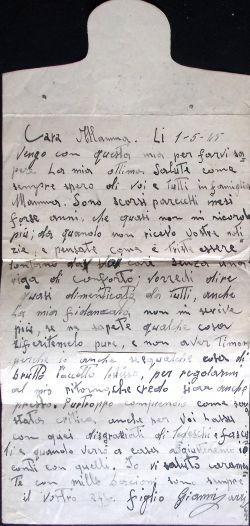 Cara Mamma. Li 1-5-45
Vengo con questa mia per farvi sa
pere la mia ottima salute come
sempre spero di voi e tutti in famiglia
Mamma. Sono scorsi parecchi mesi
forse anni, che quasi non mi ricordo
più; da quando non ricevo vostre noti
zie, e pensate come è triste essere
lontano dai voi cari senza una
riga di conforto; vorrei dire
quasi dimenticato da tutti, anche
la mia fidanzata non mi scrive
più, se ne sapete qualche cosa
riferitemelo pure, e non aver timore
perché io anche se qualche cosa di
brutto l'accetto lo stesso, per regolarmi
al mio ritorno, che credo sarà anche
presto. Purtroppo comprendo come sia
stata critica, anche per voi
con quei disgraziati di Tedeschi e fasci
ti e quando verrò a casa aggiusteremo i
conti con quelli. Io vi saluto caramen
te con mille bacioni sono sempre
il vostro figlio Gianni